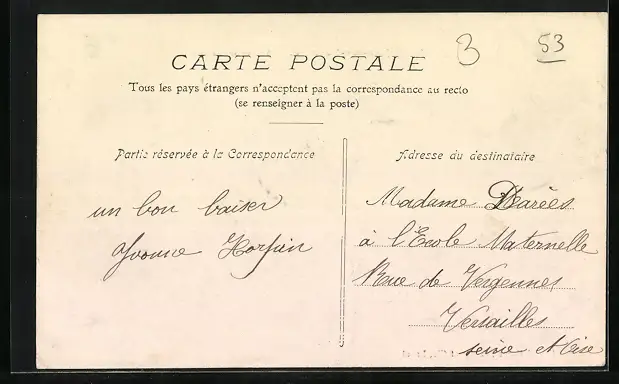 B
53
CARTE POSTALE
Tous les pays étrangers n'acceptent pas la correspondance au recto
(se renseigner à la poste)
Partie réservée à la Correspondance
Adresse du destinataire
un bon baiser
Yvonne
Madame
à l'Ecole Maternelle
Rue de Vergennes
Versailles
seine et Oise